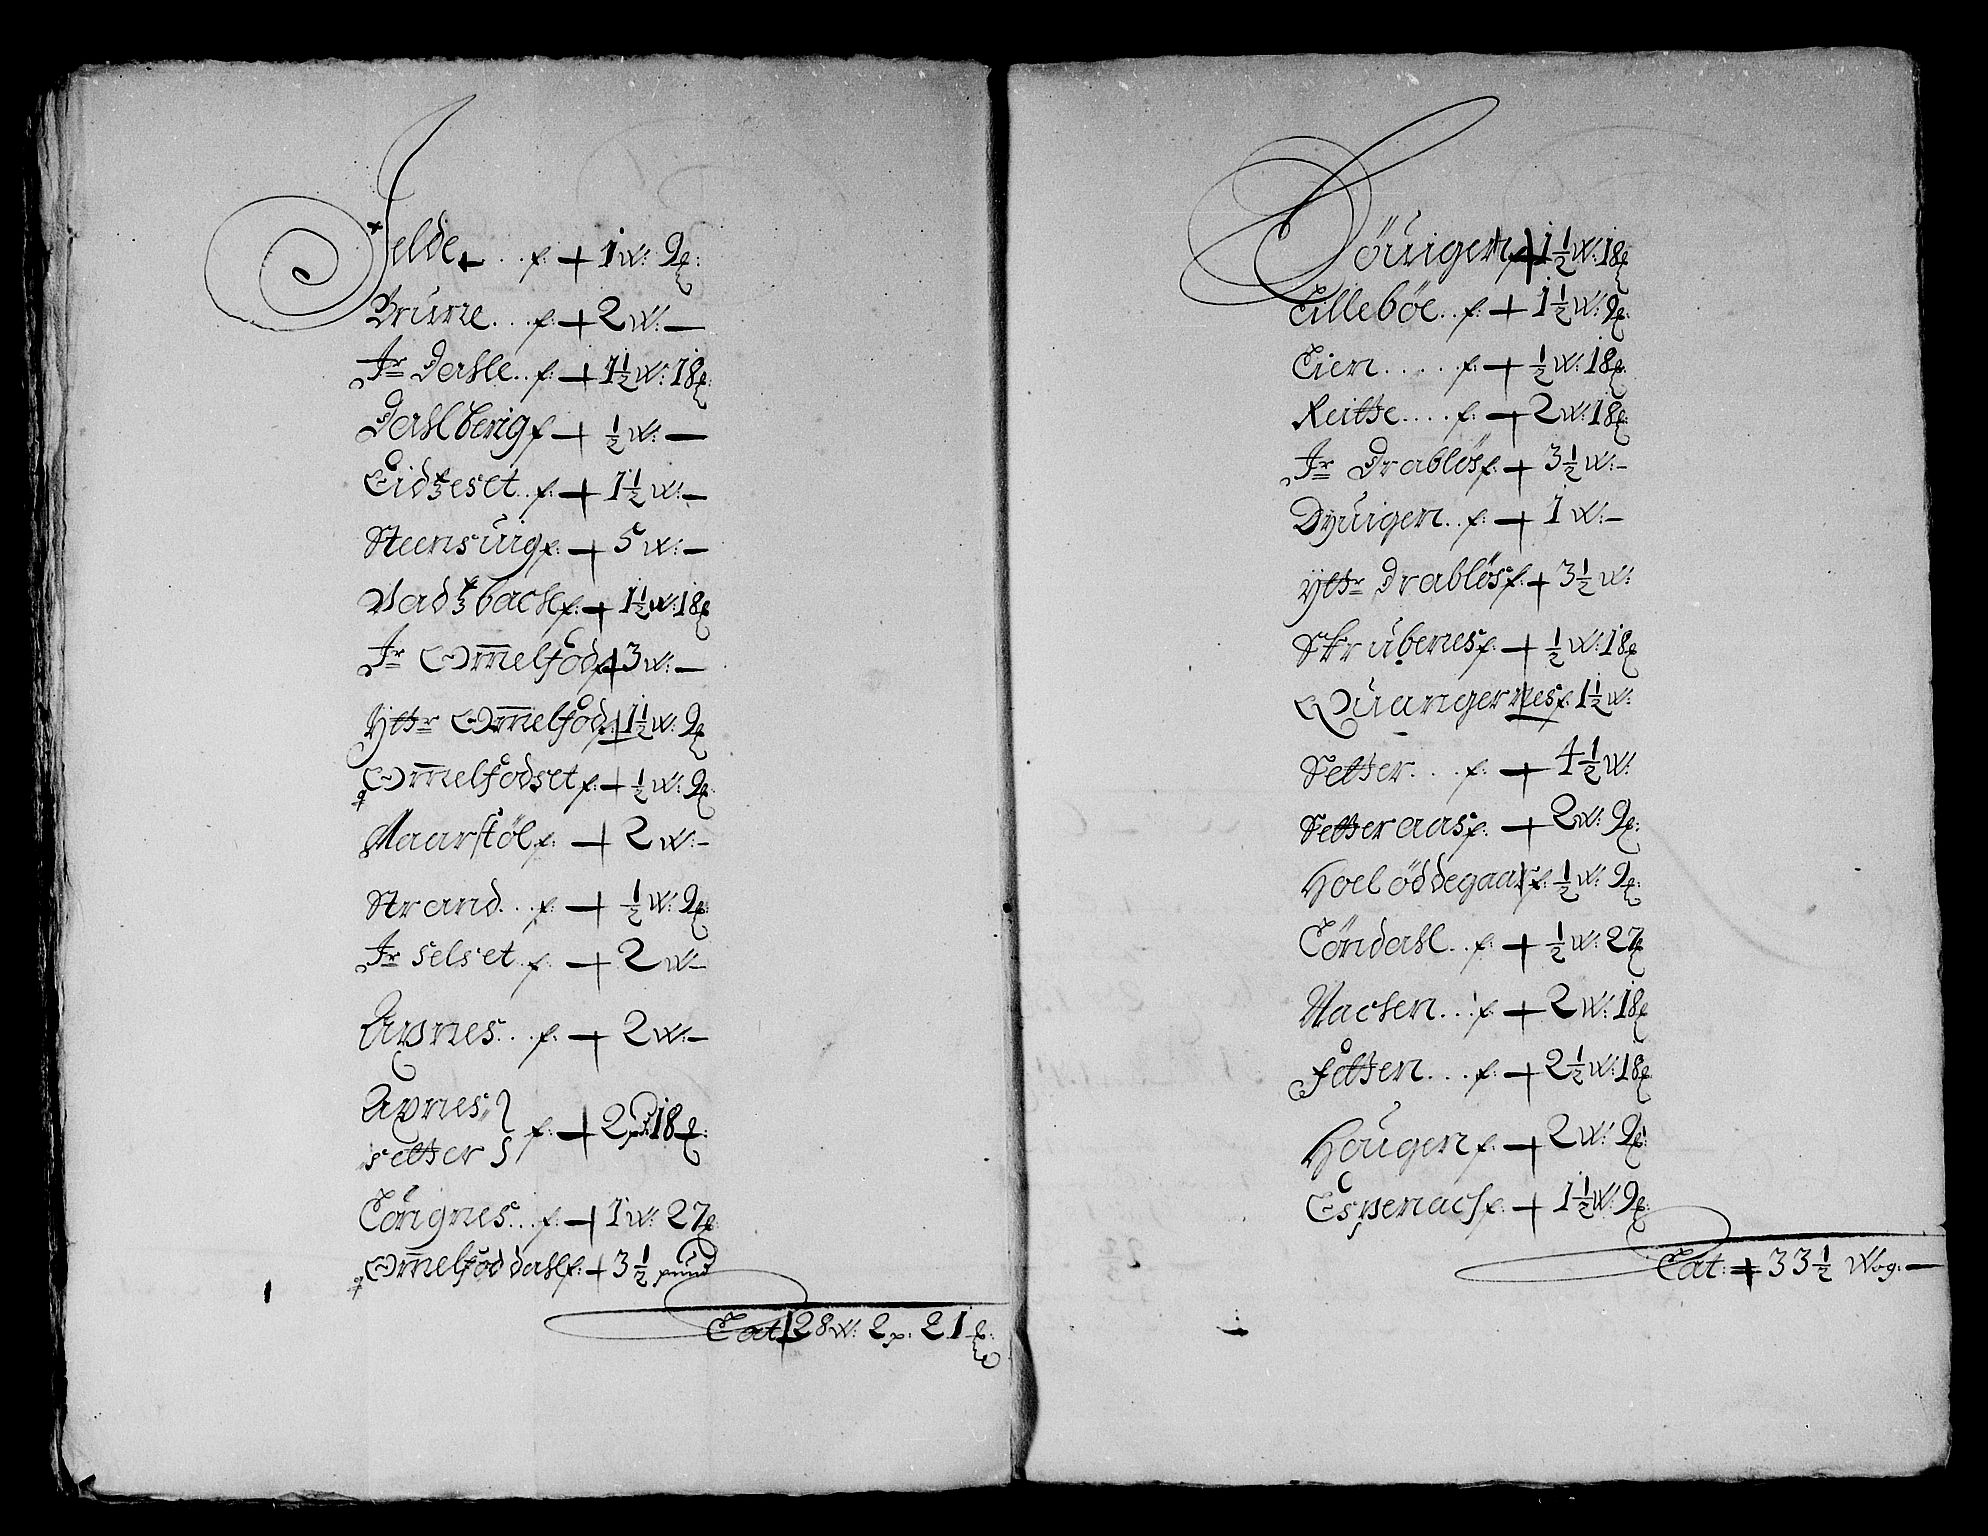 Jelde . . . f: + 1 w: 9 ℔:
Brune . . . f: + 2 w: —
Jr Dahle . . f: + 1½ w: 18 ℔:
Dahlberig f + ½ w: —
Eidtzeset . . f: + 1½ w: —
Steensuig f: + 5 w: —
Vadtzbach f: + 1½ w: 18 ℔
Jr Om̅elfod f + 3 w: —
Ythr Om̅elfod f + 1½ w: 9 ℔
Om̅elfodset f: + ½ w: 9 ℔:
Maarstöl f: + 2 w: —
Strand . . . f: + ½ w: 9 ℔:
Jr selset . f: + 2 w —
Apnes . . . f: + 2 w: —
Apnes
setter f: + 2 pd: 18 ℔:
Tongnes . . . f: + 1 w: 27 ℔
Om̅elfod dahl f: + 3½ pund
Lat + 28 w: 2 p: 21 ℔:
Göuigen f + 1½ w: 18 ℔
Lilleböe . . f: + 1½ w: 9 ℔:
Lien . . . . . f: + ½ w: 18 ℔:
Reithe . . . . f: + 2 w: 18 ℔:
Jr Drablös f: + 3½ w: –
Dyuigen . . f: + 1 w: –
Ythr Drablös f: + 3½ w:
Skrubenes f: + ½ w: 18 ℔
Quangernes f: 1½ w:
Setter . . . f: + 4½ w:
Setteraas f: + 2 w: 9 ℔:
Hoel öddegaar f: ½ w: 9 ℔:
Töndahl . . f: + ½ w: 27 ℔
Nachen . . . f: + 2 w: 18 ℔
Fetten . . . f: + 2½ w: 18 ℔
Hougen f: + 2 w: 9 ℔:
Espenach f: + 1½ w: 9 ℔:
Lat: + 33½ Wog: —